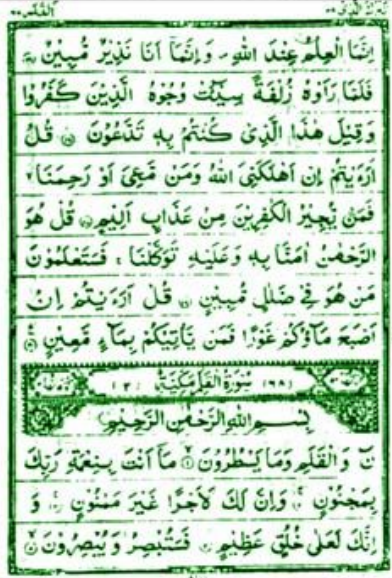 تبٰرك الذى ٢٩
القلم ٦٨
اِنَّمَا الْعِلْمُ عِنْدَ اللّٰهِ ۪ وَاِنَّمَآ اَنَا نَذِيْرٌ مُّبِيْنٌ
فَلَمَّا رَاَوْهُ زُلْفَةً سِيْٓـَٔتْ وُجُوْهُ الَّذِيْنَ كَفَرُوْا
وَقِيْلَ هٰذَا الَّذِىْ كُنْتُمْ بِهٖ تَدَّعُوْنَ ۝ قُلْ
اَرَءَيْتُمْ اِنْ اَهْلَكَنِىَ اللّٰهُ وَمَنْ مَّعِىَ اَوْ رَحِمَنَا ۙ
فَمَنْ يُّجِيْرُ الْكٰفِرِيْنَ مِنْ عَذَابٍ اَلِيْمٍ ۝ قُلْ هُوَ
الرَّحْمٰنُ اٰمَنَّا بِهٖ وَعَلَيْهِ تَوَكَّلْنَا ۚ فَسَتَعْلَمُوْنَ
مَنْ هُوَ فِىْ ضَلٰلٍ مُّبِيْنٍ ۝ قُلْ اَرَءَيْتُمْ اِنْ
اَصْبَحَ مَآؤُكُمْ غَوْرًا فَمَنْ يَّاْتِيْكُمْ بِمَآءٍ مَّعِيْنٍ ۝
(٦٨) سُوْرَةُ الْقَلَمِ مَكِّيَّةٌ (٢)
بِسْمِ اللّٰهِ الرَّحْمٰنِ الرَّحِيْمِ
نٓ وَالْقَلَمِ وَمَا يَسْطُرُوْنَ ۝ مَآ اَنْتَ بِنِعْمَةِ رَبِّكَ
بِمَجْنُوْنٍ ۝ وَاِنَّ لَكَ لَاَجْرًا غَيْرَ مَمْنُوْنٍ ۝ وَ
اِنَّكَ لَعَلٰى خُلُقٍ عَظِيْمٍ ۝ فَسَتُبْصِرُ وَيُبْصِرُوْنَ ۝